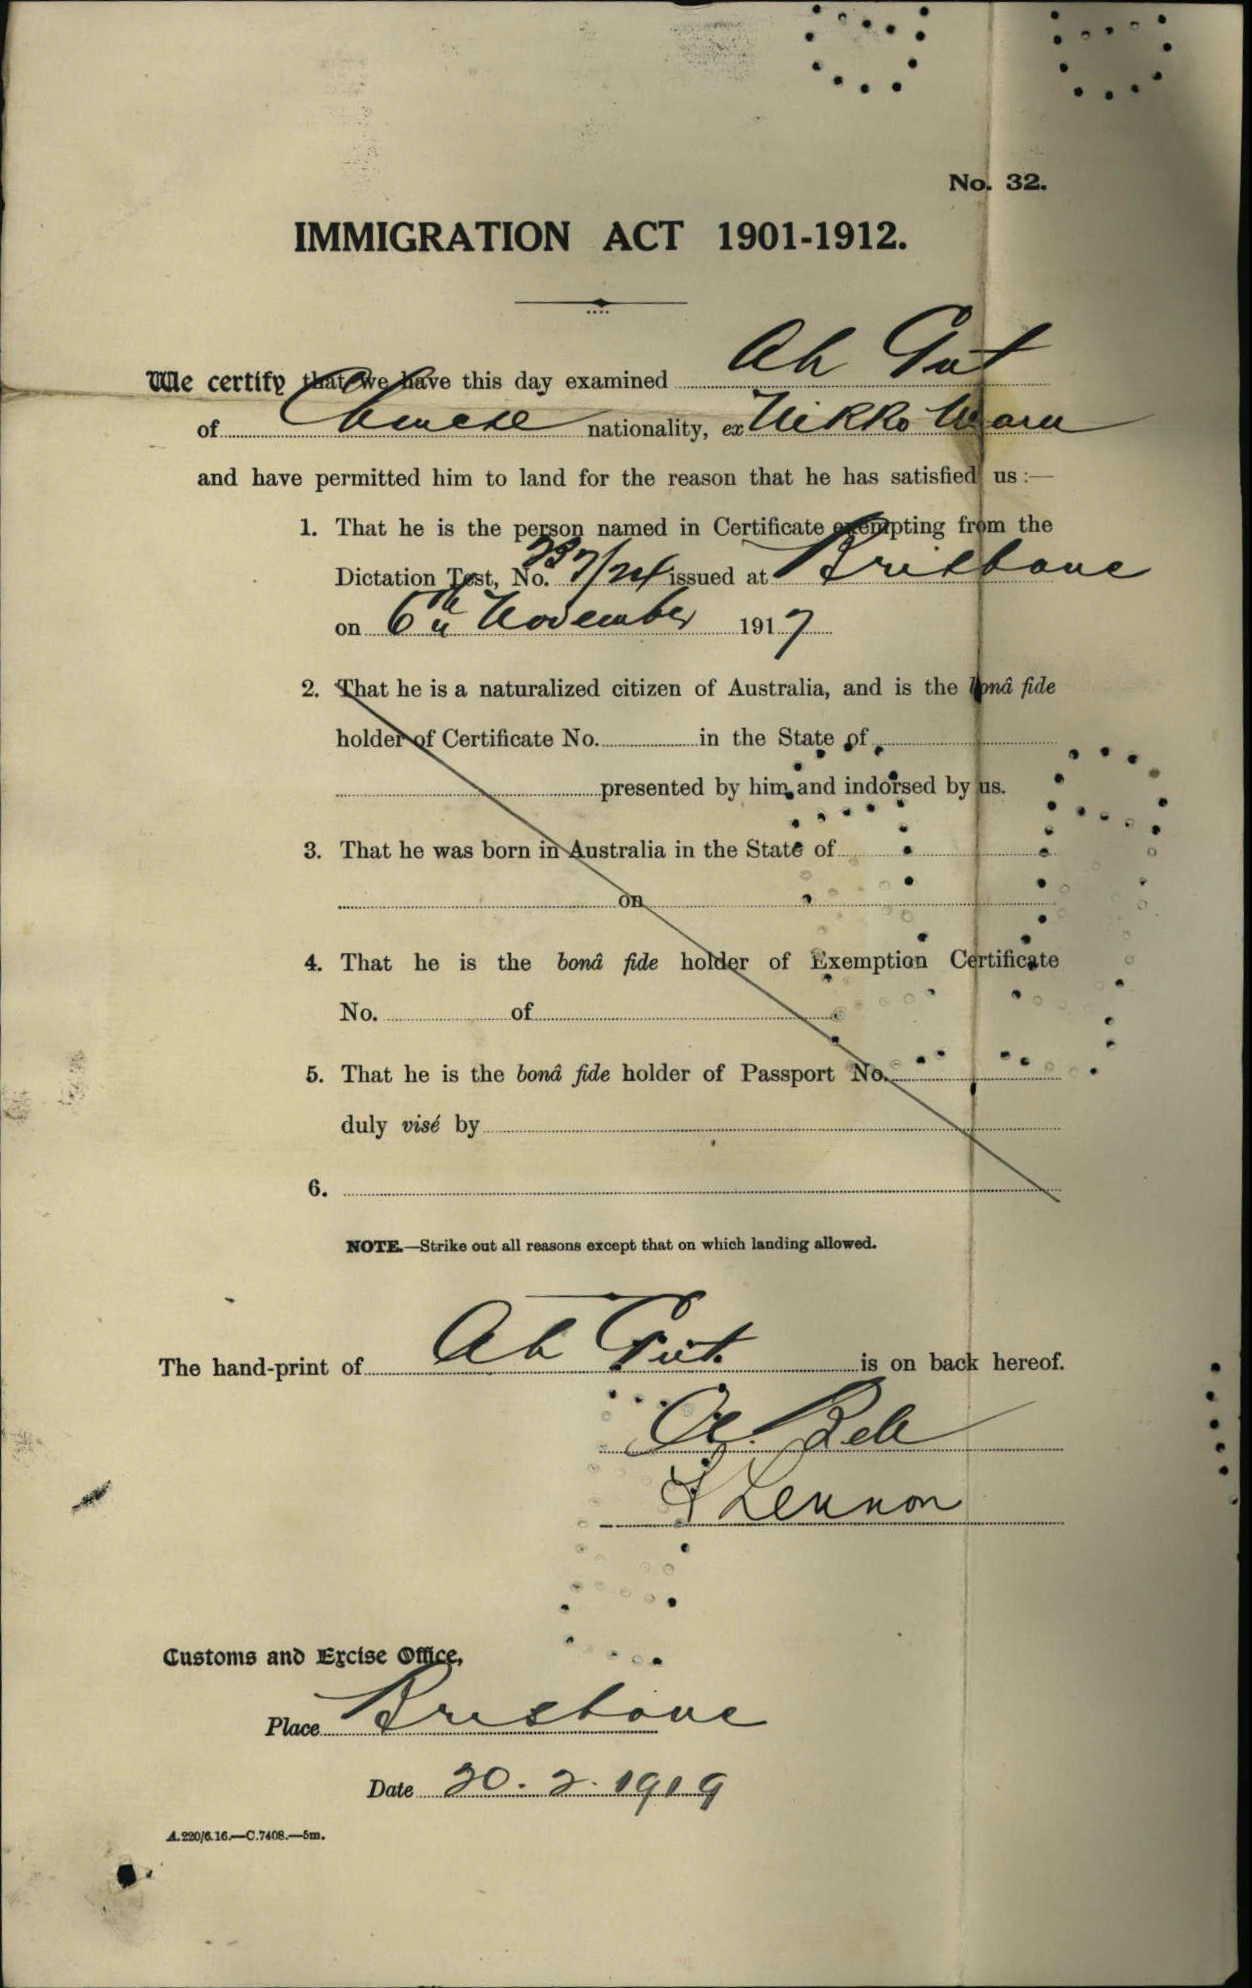 No. 32.
IMMIGRATION ACT 1901-1912.
We certify that we have this day examined Ah Gut
of Chinese nationality, ex Nikko Maru
and have permitted him to land for the reason that he has satisfied us :—
1. That he is the person named in Certificate exempting from the
Dictation Test, No. issued at Brisbane
on 6th November 1917
2. That he is a naturalized citizen of Australia, and is the bonâ fide
holder of Certificate No. in the State of
presented by him and indorsed by us.
3. That he was born in Australia in the State of
on
4. That he is the bonâ fide holder of Exemption Certificate
No. of
5. That he is the bonâ fide holder of Passport No.
duly visé by
6.
NOTE.—Strike out all reasons except that on which landing allowed.
The hand-print of Ah Gut. is on back hereof.
Lennon
Customs and Excise Office,
Place Brisbane
Date 20.2.1919
A.220/6.16.—C.7408.—5m.